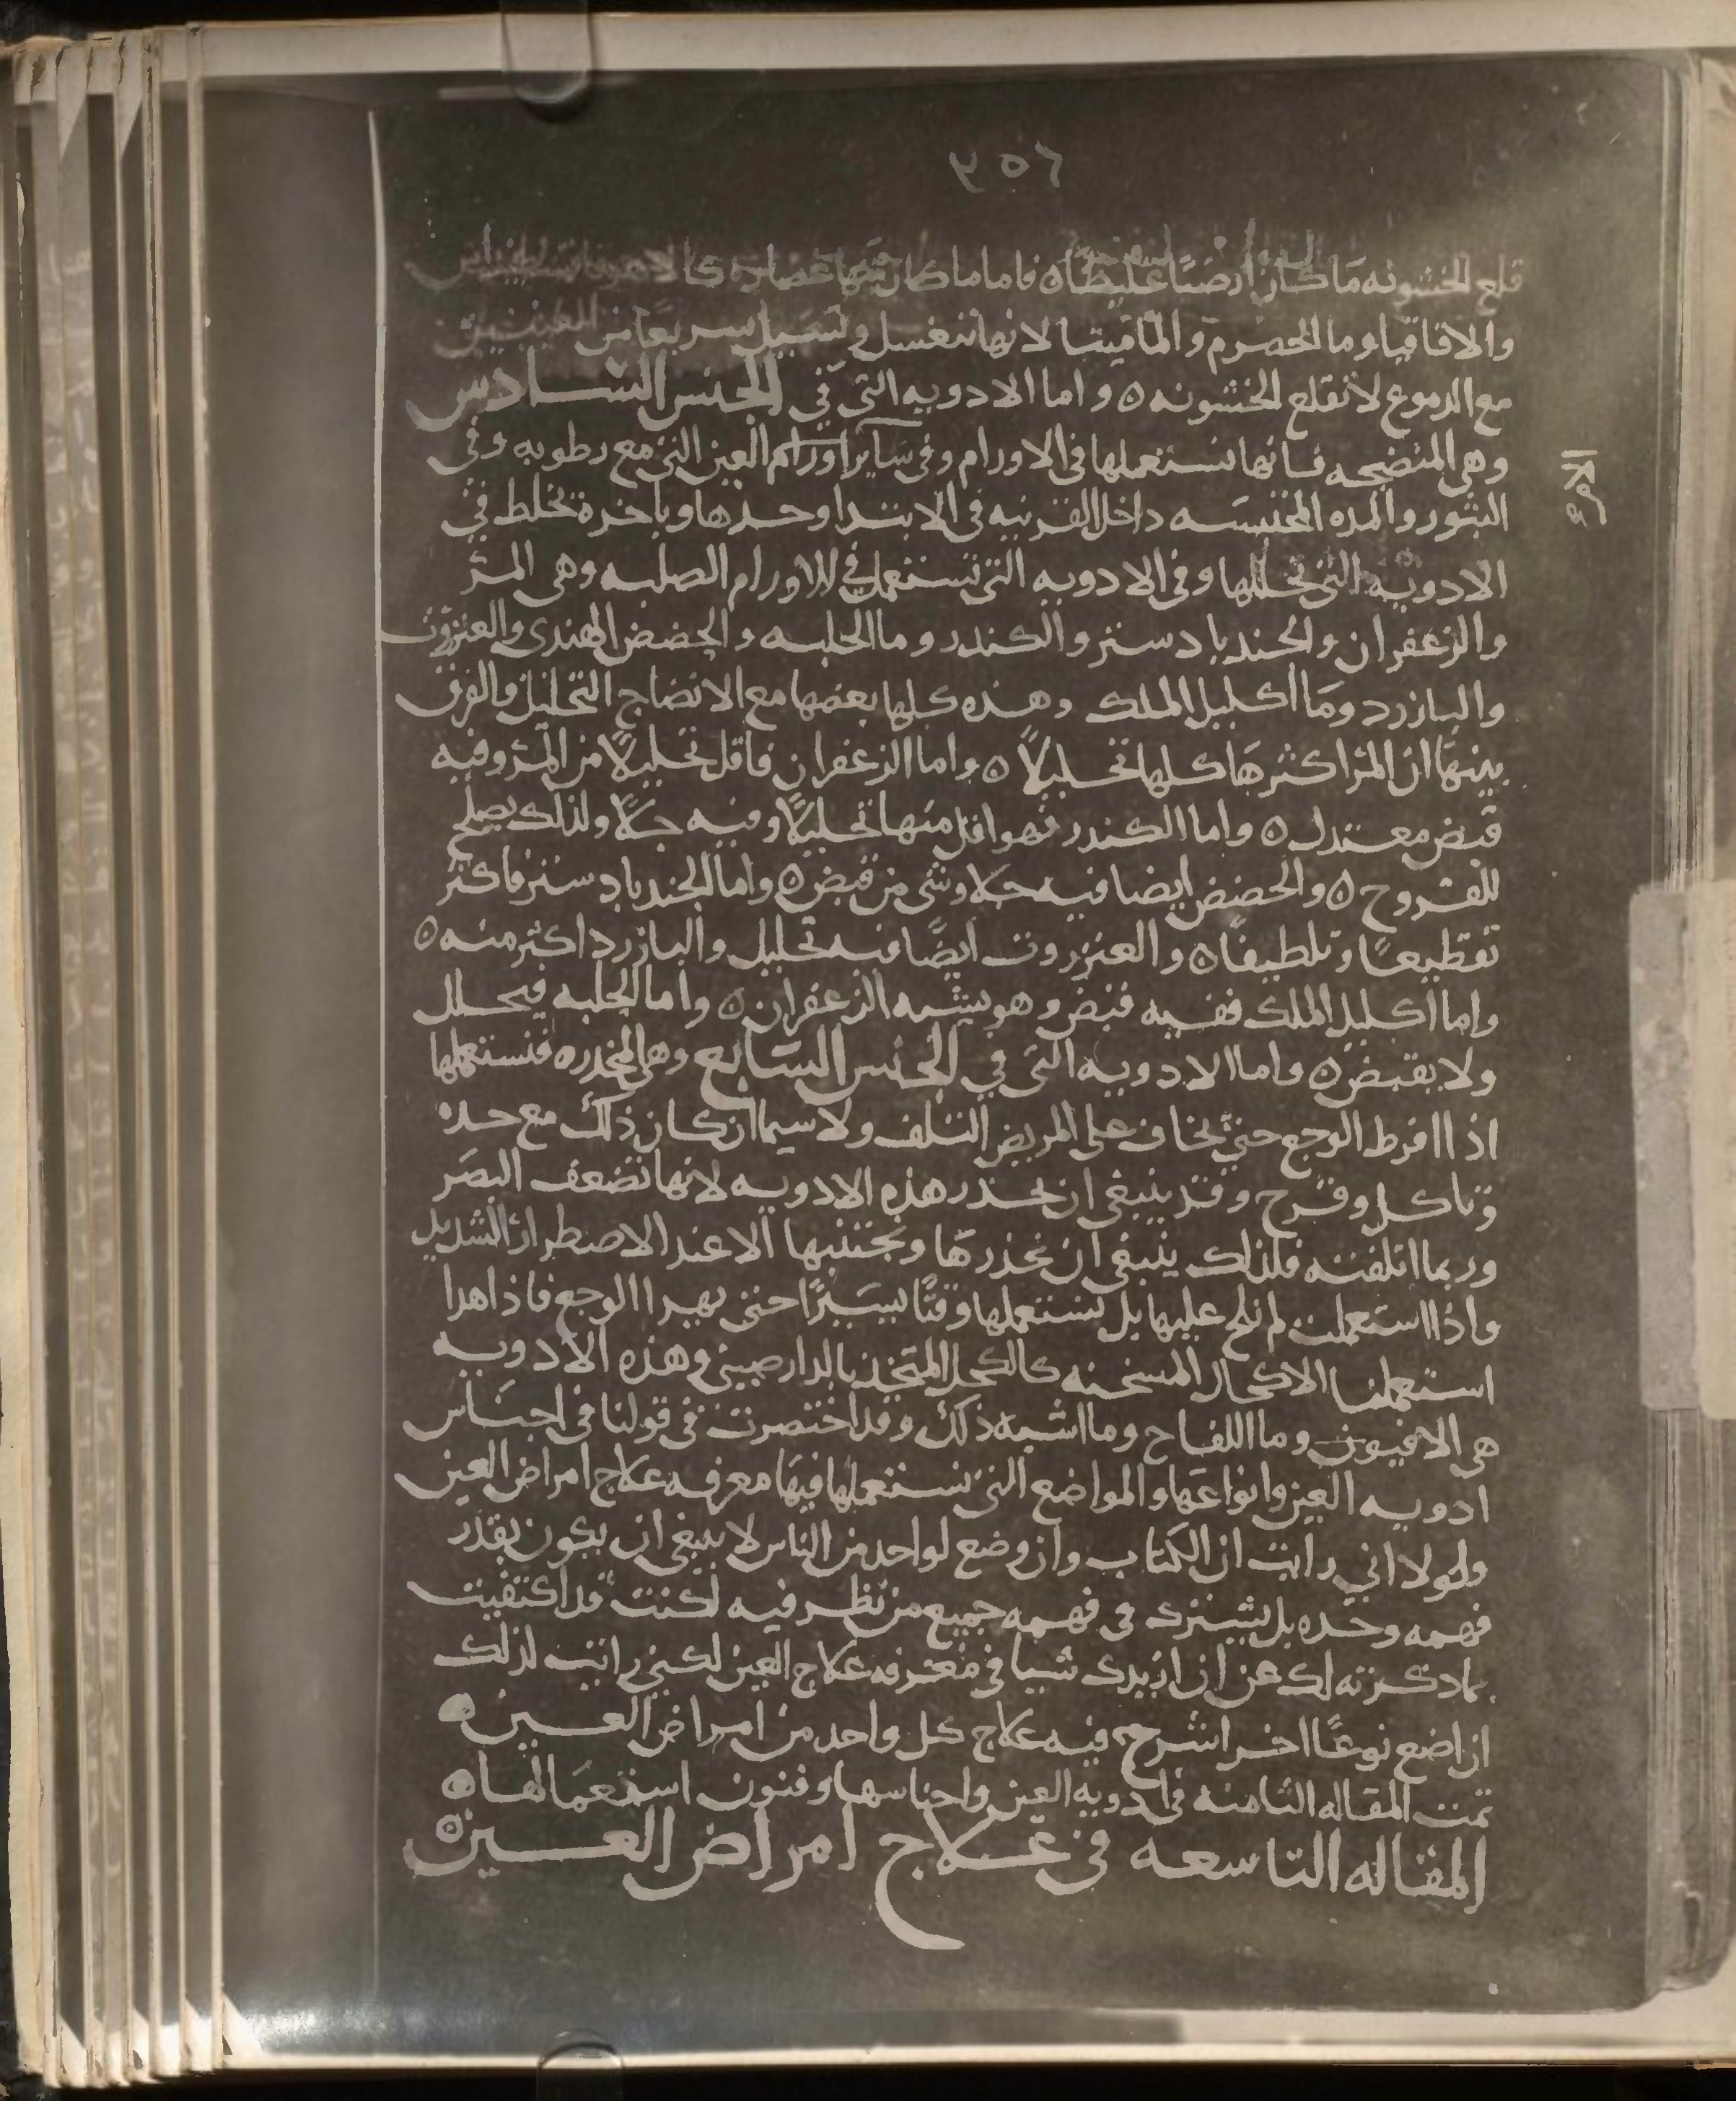 ٢٥٦
قلع الخشونه ما كان ارضيا غليظا ه فاما ما كان منها عصاره كا
والاقاقيا وما الحصرم والماميثا لانها تنغسل وتسيل سريعا من العينين
مع الدموع لا تقلع الخشونه ه واما الادويه التي في الجنس السادس
وهي المنضجه فانها تستعملها في الاورام وفي ساير اورام العين التي مع رطوبه وفي
البثور والمده المحتبسه داخل القرنيه في الابتدا وحدها وباخرة تخلط في
الادويه التي تحللها وفي الادويه التي تستعمل في الاورام الصلبه وهي المر
والزعفران والجندبادستر والكندر وما الحلبه والحضض الهندى والعنزروت
والبازرد وما اكليل الملك وهذه كلها بعضها مع الانضاج التحليل والفرق
بينها ان المر اكثرها كلها تحليلا ه واما الزعفران فاقل تحليلا من المر وفيه
قبض معتدل ه واما الكندر فهو اقل منها تحليلا وفيه جلا ولذلك يصلح
للقروح ه والحضض ايضا فيه جلا وشى من قبض ه واما الجندبادستر فاكثر
تقطيعا وتلطيفا ه والعنزروت ايضا فيه تحليل والبازرد اكثر منه ه
واما اكليل الملك ففيه قبض وهو يشبه الزعفران ه واما الحلبه فيحلل
ولا يقبض ه واما الادويه التي في الجنس السابع وهي المخدره فنستعملها
اذا افرط الوجع حتي يخاف على المريض التلف ولا سيما ان كان ذلك مع حده
وتاكل وقرح وقد ينبغي ان يحذر هذه الادويه لانها تضعف البصر
وربما اتلفته فلذلك ينبغي ان نحذرها ونجتنبها الا عند الاضطرار الشديد
واذا استعملت لم نلح عليها بل نستعملها وقتا يسيرا حتى يهدا الوجع فاذا هدا
استعملنا الاكحال المسخنه كالكحل المتخذ بالدارصيني وهذه الادويه
هي الافيون وما اللفاح وما اشبه ذلك وقد اختصرت في قولنا في اجناس
ادويه العين وانواعها والمواضع التي نستعملها فيها معرفه علاج امراض العين
ولولا اني رايت ان الكتاب وان وضع لواحد من الناس لا ينبغي ان يكون بقدر
فهمه وحده بل يشترك في فهمه جميع من نظر فيه لكنت قد اكتفيت
بما ذكرته لك عن ان ازيدك شيا في معرفه علاج العين لكني رايت لذلك
ان اضع نوعا اخر اشرح فيه علاج كل واحد من امراض العين ه
تمت المقاله الثامنه في ادويه العين واجناسها وفنون استعمالها ه
المقاله التاسعه في علاج امراض العين ه